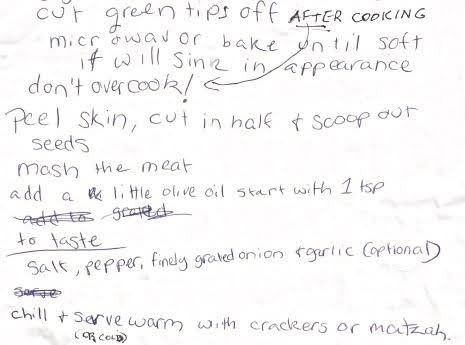 cut green tips off AFTER COOKING
microwav or bake until soft
it will sink in appearance
don't overcook!
Peel skin, cut in half & scoop out
seeds
mash the meat
add a little olive oil start with 1 tsp
add to grated
to taste
salt, pepper, finely grated onion & garlic (optional)
serve
chill & serve warm with crackers or matzah.
(OR COLD)